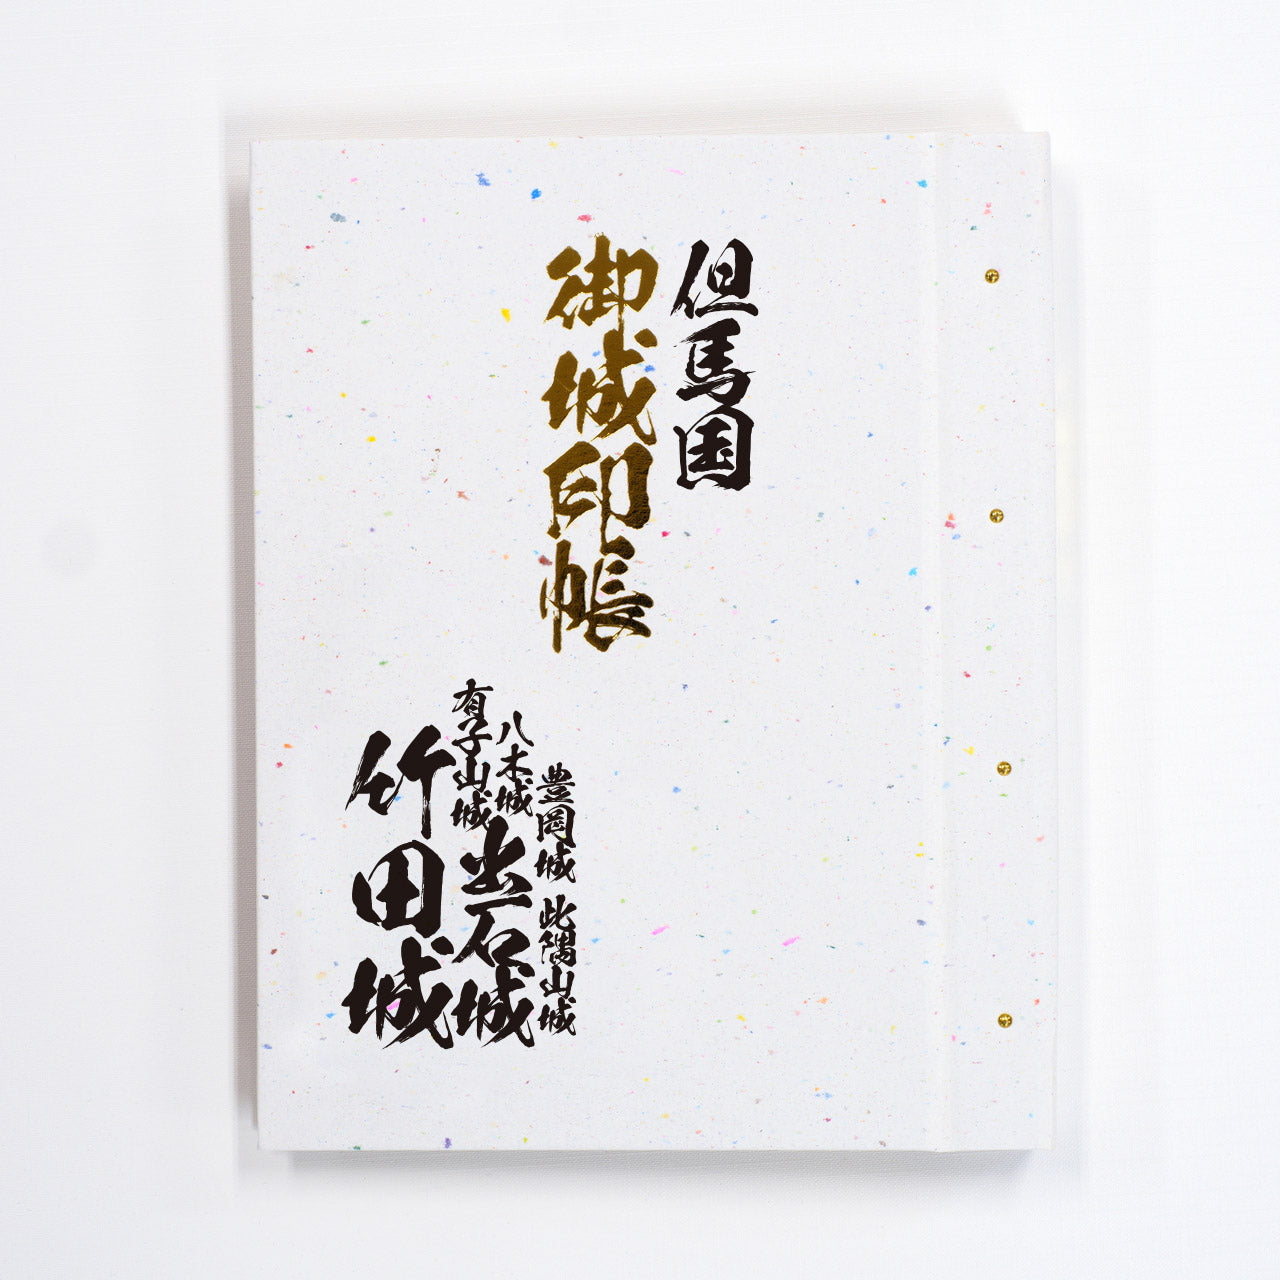 但馬国
御城印帳
豊岡城
此隅山城
八木城
出石城
有子山城
竹田城